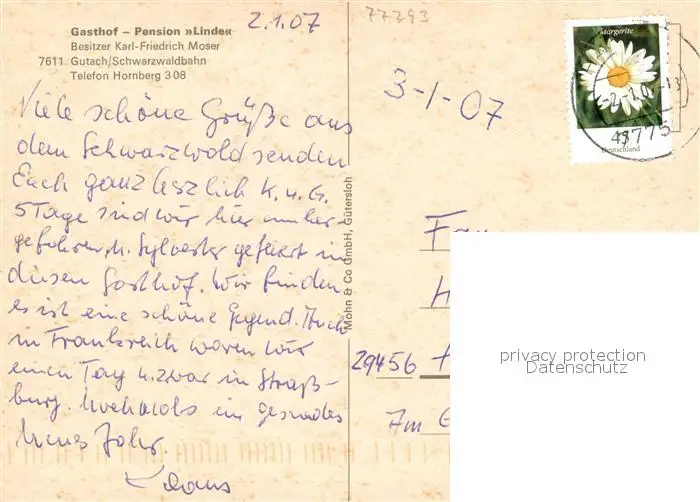 Gasthof – Pension »Linde«
Besitzer Karl-Friedrich Moser
7611 Gutach/Schwarzwaldbahn
Telefon Hornberg 3 08
2.1.07
77293
Viele schöne Grüße aus
dem Schwarzwald senden
Euch ganz herzlich K. u. G.
5 Tage sind wir hier umher-
gefahren, u. Sylvester gefeiert in
diesen Gasthof. Wir finden
es ist eine schöne Gegend. Auch
in Frankreich waren wir
einen Tag u. zwar in Straß-
burg. Nochmals ein gesundes
Neues Jahr.
Klaus
Mohn & Co GmbH, Gütersloh
Margerite
Deutschland
3-1-07
29456
Im
privacy protection
Datenschutz